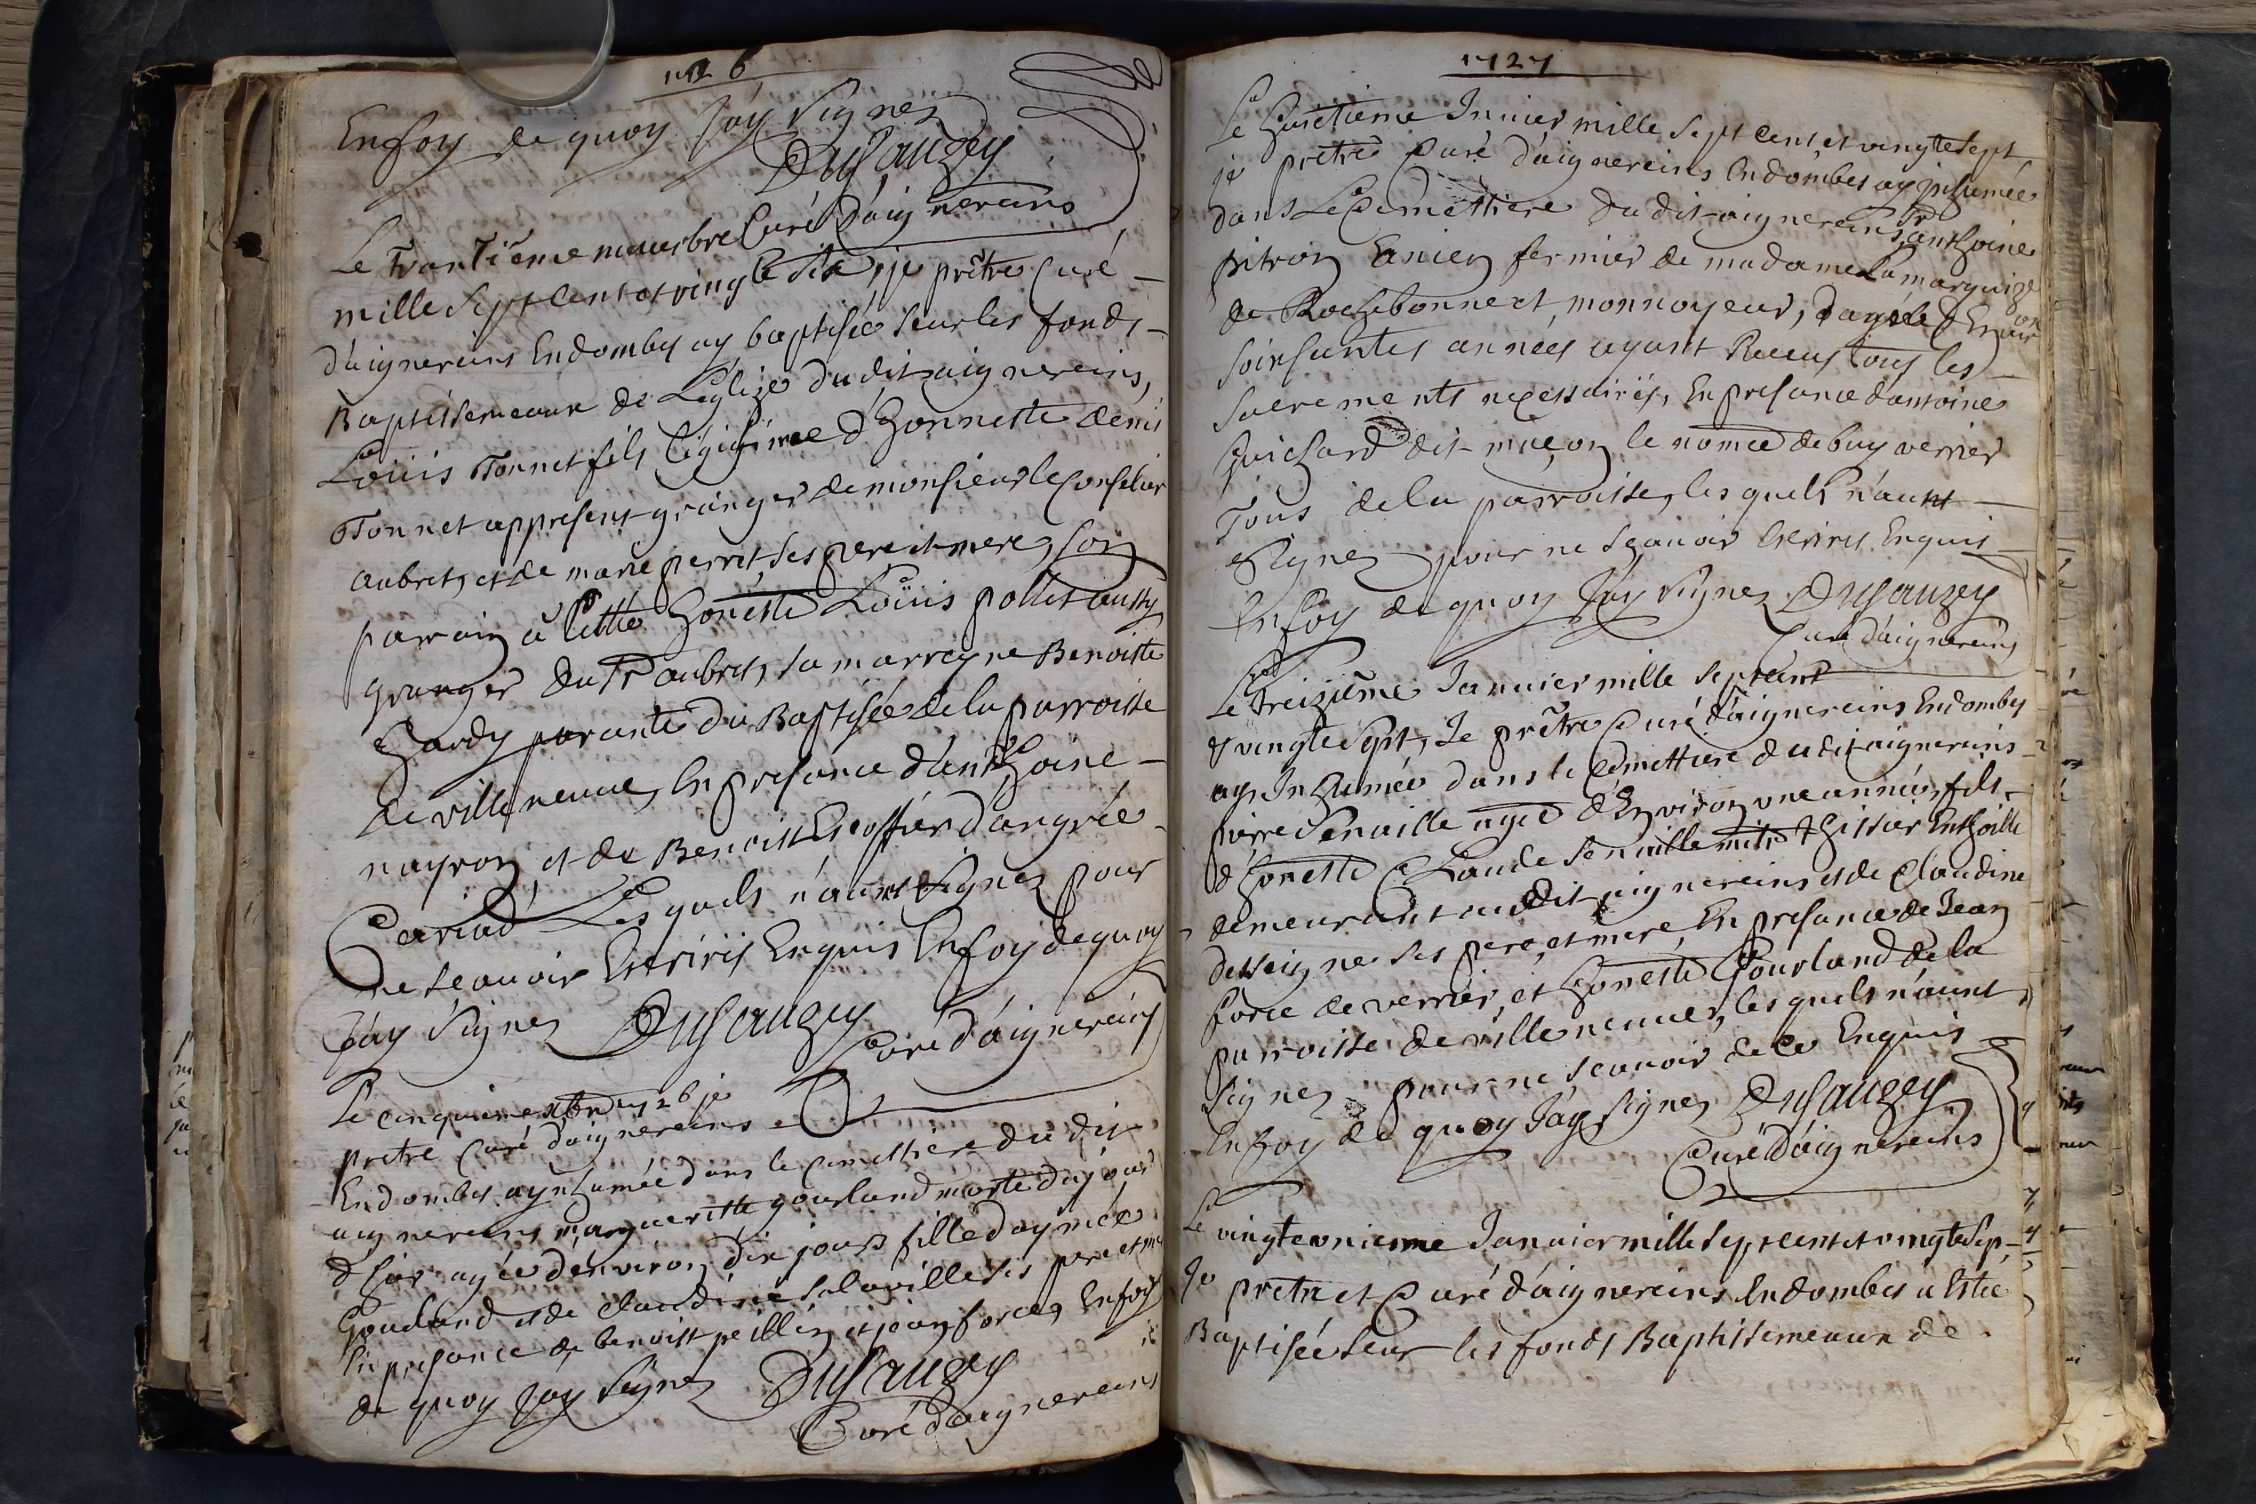 1726
Enfoy de quoy Jáy Signez
DuSauzey
Curé d'áignereins
Le Trantiéme novembre
mille Sept Cent et vingte Six, je prêtre Curé
d'áignereins Endombes ay baptisée Seur les fonds
Baptissemeaux de L'eglize du dit aignereins,
Loüis Tonnet fils légigime d'honneste denis
Tonnet appresent granger de monsieur le Conselier
aubret, et de marie perret, ses pere et mere, son
parrain á Estté honéste Loüis pollet aussy
granger du Sr aubret, sa marreyne Benoiste
hardy parante du Baptisée de la parroisse
de villeneuve, En presance d'anthoine
nayron, et de Benoist Escoffier d'angrée
Les quels n'aunt Signez pour
ne Scauoir Escriré Enquis Enfoy de quoy
Jáy Signez DuSauzey
Curé d'áignereins
Le cinquieme xbre 1726 je
pretre Curé d'áignereins
Endombes ay inhumée dans le Cimettiere du dit
aignereins margueritte gourland morte du jour
d'hier agée d'énviron dix jours fille d'aymée
Gourland et de claudine Salaville Ses pere et me
En presance de benoist peillen et jean force, Enfoy
de quoy Jay Signez DuSauzey
Curé d'aignereins
1727
Le huictieme Januier mille Sept Cent et vingte Sept
je prêtre Curé d'áignereins Endombes ay inhumée
dans Le Cimettiere du dit aignereins, Sr anthoine
pitron fermier de madame La marquize
de Rochebonne et monnoyeur, d'Environ
Soixsantes années ayant Receus tous les
Sacrements necessairés, En presance dantoine
Guichard dit maçon le nomée debuy verrier
Tous de la parroisse, les quels n'aunt
Signez pour ne Scauoir Escriret Enquis
Enfoy de quoy Jáy Signez DuSauzey
Curé d'áignereins
Le Treiziéme Januier mille Sept Cent
et vingte Sept, Je prêtre Curé d'áignereins Endombes
ay Inhumée dans le Cimettiere du dit aignereins
pierre Senaille agée d'Environ vne année, fils
d'honeste Claude Senaille mitre thissier Enthoille
demeurant au dit aignereins et de Claudine
desseigne ses pere, et mere, En presance de Jean
force de verrier, et honéste Gourland de la
parroisse de villeneuve, les quels n'aunt
Signez pour ne Scauoir de Ce Enquis
Enfoy de quoy Jáy Signez DuSauzey
Curé d'áignereins
Le vingte vnieme Januier mille Sept cent et vingte Sep
Je prêtre et Curé d'áignereins Endombes a Estée
Baptisée Seur les fonds Baptissemeaux de